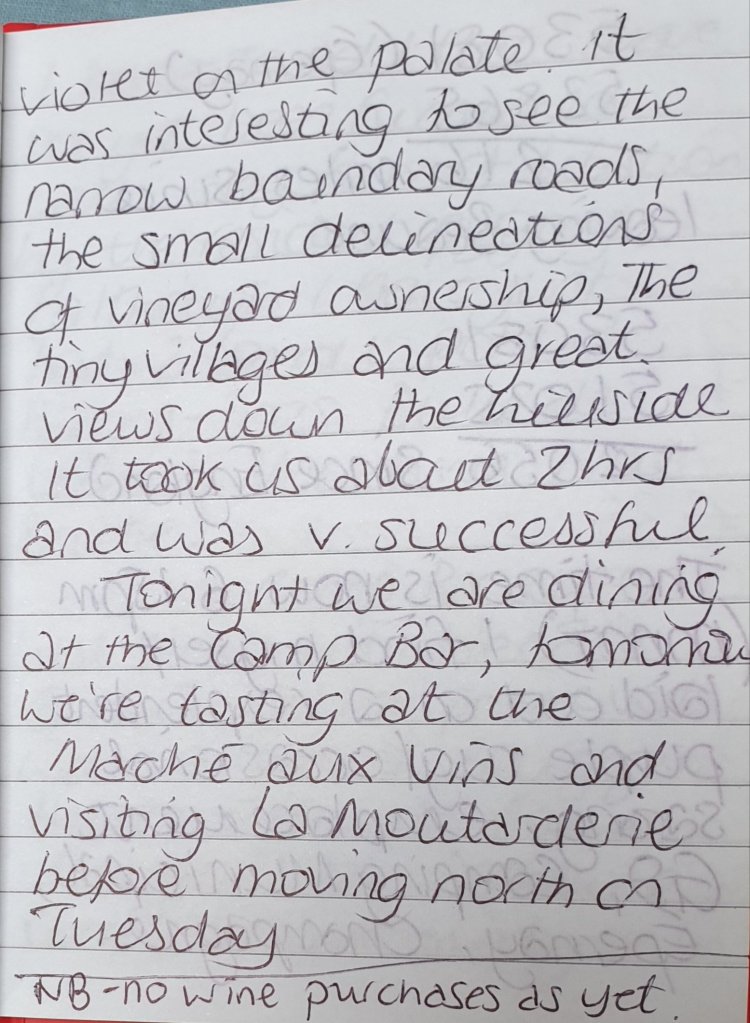 violet on the palate. It
was interesting to see the
narrow boundary roads,
the small delineations
of vineyard ownership, The
tiny villages and great
views down the hillside
It took us about 2hrs
and was v. successful.
Tonight we are dining
at the Camp Bar, tomorrow
we're tasting at the
Marché aux Vins and
visiting La Moutarderie
before moving north on
Tuesday
NB - no wine purchases as yet.